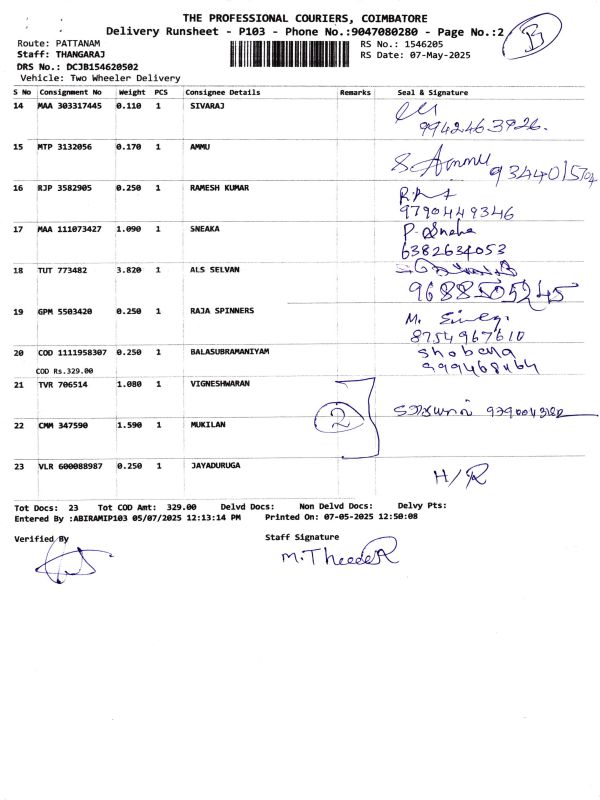 THE PROFESSIONAL COURIERS, COIMBATORE
Delivery Runsheet - P103 - Phone No.:9047080280 - Page No.:2
B
Route: PATTANAM
RS No.: 1546205
Staff: THANGARAJ
RS Date: 07-May-2025
DRS No.: DCJB154620502
Vehicle: Two Wheeler Delivery
S No Consignment No Weight PCS Consignee Details Remarks Seal & Signature
14 MAA 303317445 0.110 1 SIVARAJ
9942463926.
15 MTP 3132056 0.170 1 AMMU
S. Ammu 9344015704
16 RJP 3582905 0.250 1 RAMESH KUMAR
9790449346
17 MAA 111073427 1.090 1 SNEAKA P. Sneha
6382634053
18 TUT 773482 3.820 1 ALS SELVAN
9688505245
19 GPM 5503420 0.250 1 RAJA SPINNERS
M.
8754967610
20 COD 1111958307 0.250 1 BALASUBRAMANIYAM Shobana
COD Rs.329.00
21 TVR 706514 1.080 1 VIGNESHWARAN
2
22 CMM 347590 1.590 1 MUKILAN
23 VLR 600088987 0.250 1 JAYADURUGA
H/R
Tot Docs: 23 Tot COD Amt: 329.00 Delvd Docs: Non Delvd Docs: Delvy Pts:
Entered By :ABIRAMIP103 05/07/2025 12:13:14 PM Printed On: 07-05-2025 12:50:08
Verified By Staff Signature
M.